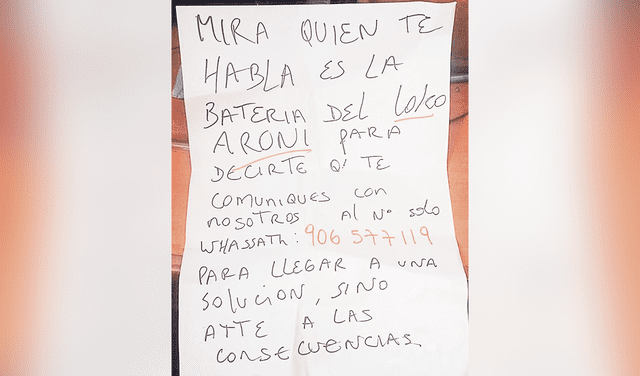 MIRA QUIEN TE
HABLA ES LA
BATERIA DEL loko
ARONI PARA
DECIRTE Q' TE
COMUNIQUES CON
NOSOTROS Al Nº Solo
WHASSATh: 906 577119
PARA LLEGAR A UNA
SOLUCION, SINO
ATTE A LAS
CONSECUENCIAS.